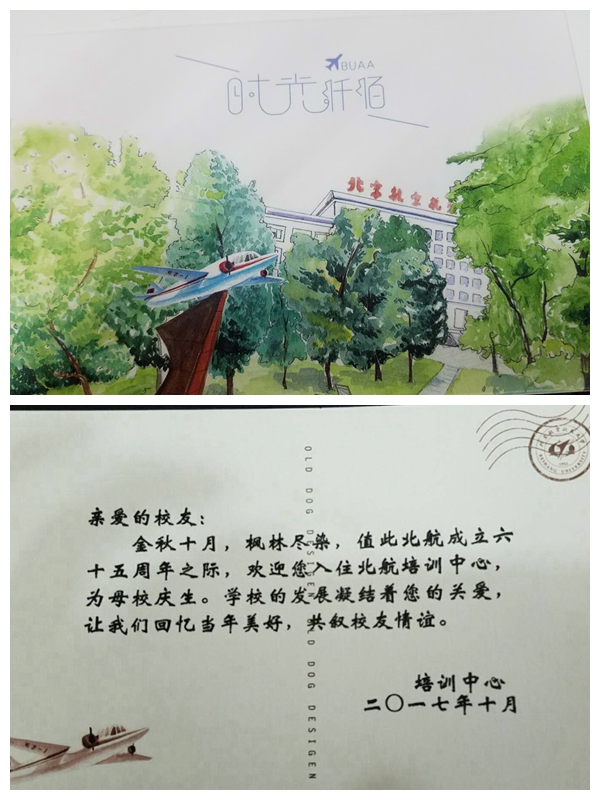 BUAA
时光阡陌
北京航空航
亲爱的校友：
金秋十月，枫林尽染，值此北航成立六
十五周年之际，欢迎您入住北航培训中心，
为母校庆生。学校的发展凝结着您的关爱，
让我们回忆当年美好，共叙校友情谊。
培训中心
二〇一七年十月
OLD DOG DESIGEN OLD DOG DESIGEN